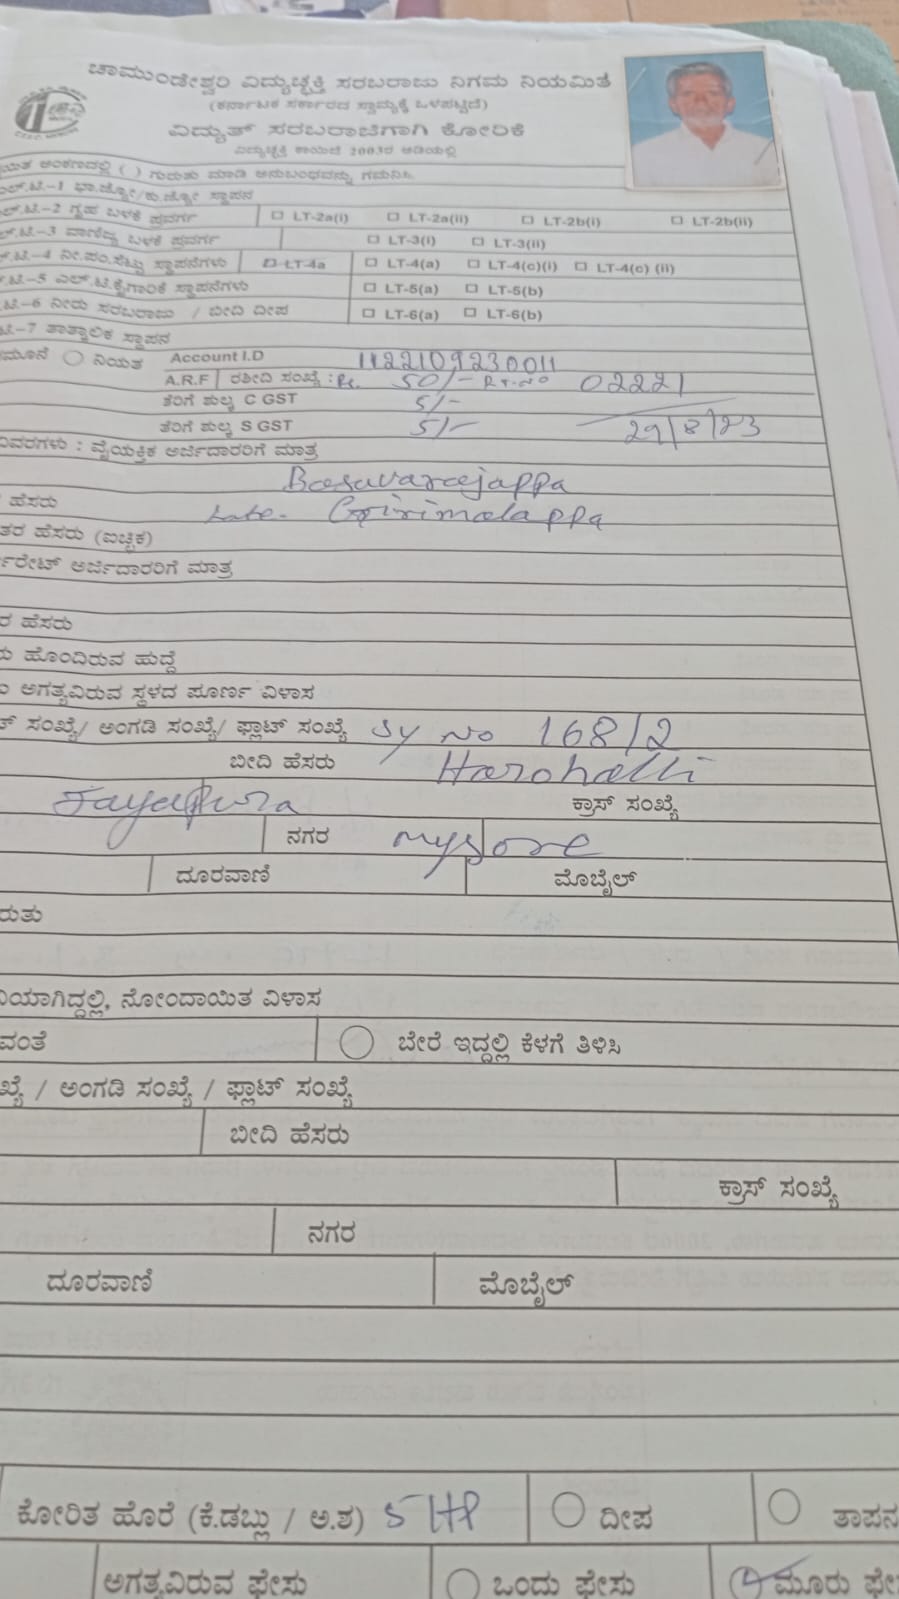 ಚಾಮುಂಡೇಶ್ವರಿ ವಿದ್ಯುಚ್ಛಕ್ತಿ ಸರಬರಾಜು ನಿಗಮ ನಿಯಮಿತ
(ಕರ್ನಾಟಕ ಸರ್ಕಾರದ ಸ್ವಾಮ್ಯಕ್ಕೆ ಒಳಪಟ್ಟಿದೆ)
ವಿದ್ಯುತ್ ಸರಬರಾಜಿಗಾಗಿ ಕೋರಿಕೆ
ವಿದ್ಯುಚ್ಛಕ್ತಿ ಕಾಯಿದೆ 2003ರ ಅಡಿಯಲ್ಲಿ
ಅಂಕಣದಲ್ಲಿ ( ) ಗುರುತು ಮಾಡಿ ಅನುಬಂಧವನ್ನು ಗಮನಿಸಿ
ಟಿ.-1 ಭಾ.ಜ್ಯೋ/ಕು.ಜ್ಯೋ ಸ್ಥಾಪನ
ಟಿ.-2 ಗೃಹ ಬಳಕೆ ಪ್ರವರ್ಗ LT-2a(i) LT-2a(ii) LT-2b(i) LT-2b(ii)
ಟಿ.-3 ವಾಣಿಜ್ಯ ಬಳಕೆ ಪ್ರವರ್ಗ LT-3(i) LT-3(ii)
ಟಿ.-4 ನೀ.ಪಂ.ಸೆಟ್ಟು ಸ್ಥಾಪನೆಗಳು LT-4a LT-4(a) LT-4(c)(i) LT-4(c) (ii)
ಟಿ.-5 ಎಲ್.ಟಿ.ಕೈಗಾರಿಕೆ ಸ್ಥಾಪನೆಗಳು LT-5(a) LT-5(b)
ಟಿ.-6 ನೀರು ಸರಬರಾಜು / ಬೀದಿ ದೀಪ LT-6(a) LT-6(b)
ಟಿ.-7 ತಾತ್ಕಾಲಿಕ ಸ್ಥಾಪನ
ನಿಯತ Account I.D 1122109230011
A.R.F ರಶೀದಿ ಸಂಖ್ಯೆ : Rs. 50/- RT.No 02221
ತೆರಿಗೆ ಶುಲ್ಕ C GST 5/-
ತೆರಿಗೆ ಶುಲ್ಕ S GST 5/- 29/8/23
ವಿವರಗಳು : ವೈಯಕ್ತಿಕ ಅರ್ಜಿದಾರರಿಗೆ ಮಾತ್ರ
Basavarajappa
ಹೆಸರು Late. Girimalappa
ತರ ಹೆಸರು (ಐಚ್ಛಿಕ)
ರೇಟ್ ಅರ್ಜಿದಾರರಿಗೆ ಮಾತ್ರ
ರ ಹೆಸರು
ಹೊಂದಿರುವ ಹುದ್ದೆ
ಅಗತ್ಯವಿರುವ ಸ್ಥಳದ ಪೂರ್ಣ ವಿಳಾಸ
ಸಂಖ್ಯೆ/ ಅಂಗಡಿ ಸಂಖ್ಯೆ/ ಫ್ಲಾಟ್ ಸಂಖ್ಯೆ Sy No 168/2
ಬೀದಿ ಹೆಸರು Harohalli
Jayapura ಕ್ರಾಸ್ ಸಂಖ್ಯೆ
ನಗರ Mysore
ದೂರವಾಣಿ ಮೊಬೈಲ್
ರುತು
ಯಾಗಿದ್ದಲ್ಲಿ, ನೋಂದಾಯಿತ ವಿಳಾಸ
ವಂತೆ ಬೇರೆ ಇದ್ದಲ್ಲಿ ಕೆಳಗೆ ತಿಳಿಸಿ
ಖ್ಯೆ / ಅಂಗಡಿ ಸಂಖ್ಯೆ / ಫ್ಲಾಟ್ ಸಂಖ್ಯೆ
ಬೀದಿ ಹೆಸರು
ಕ್ರಾಸ್ ಸಂಖ್ಯೆ
ನಗರ
ದೂರವಾಣಿ ಮೊಬೈಲ್
ಕೋರಿತ ಹೊರೆ (ಕೆ.ಡಬ್ಲು / ಅ.ಶ) 5 HP ದೀಪ ತಾಪನ
ಅಗತ್ಯವಿರುವ ಫೇಸು ಒಂದು ಫೇಸು ಮೂರು ಫೇ